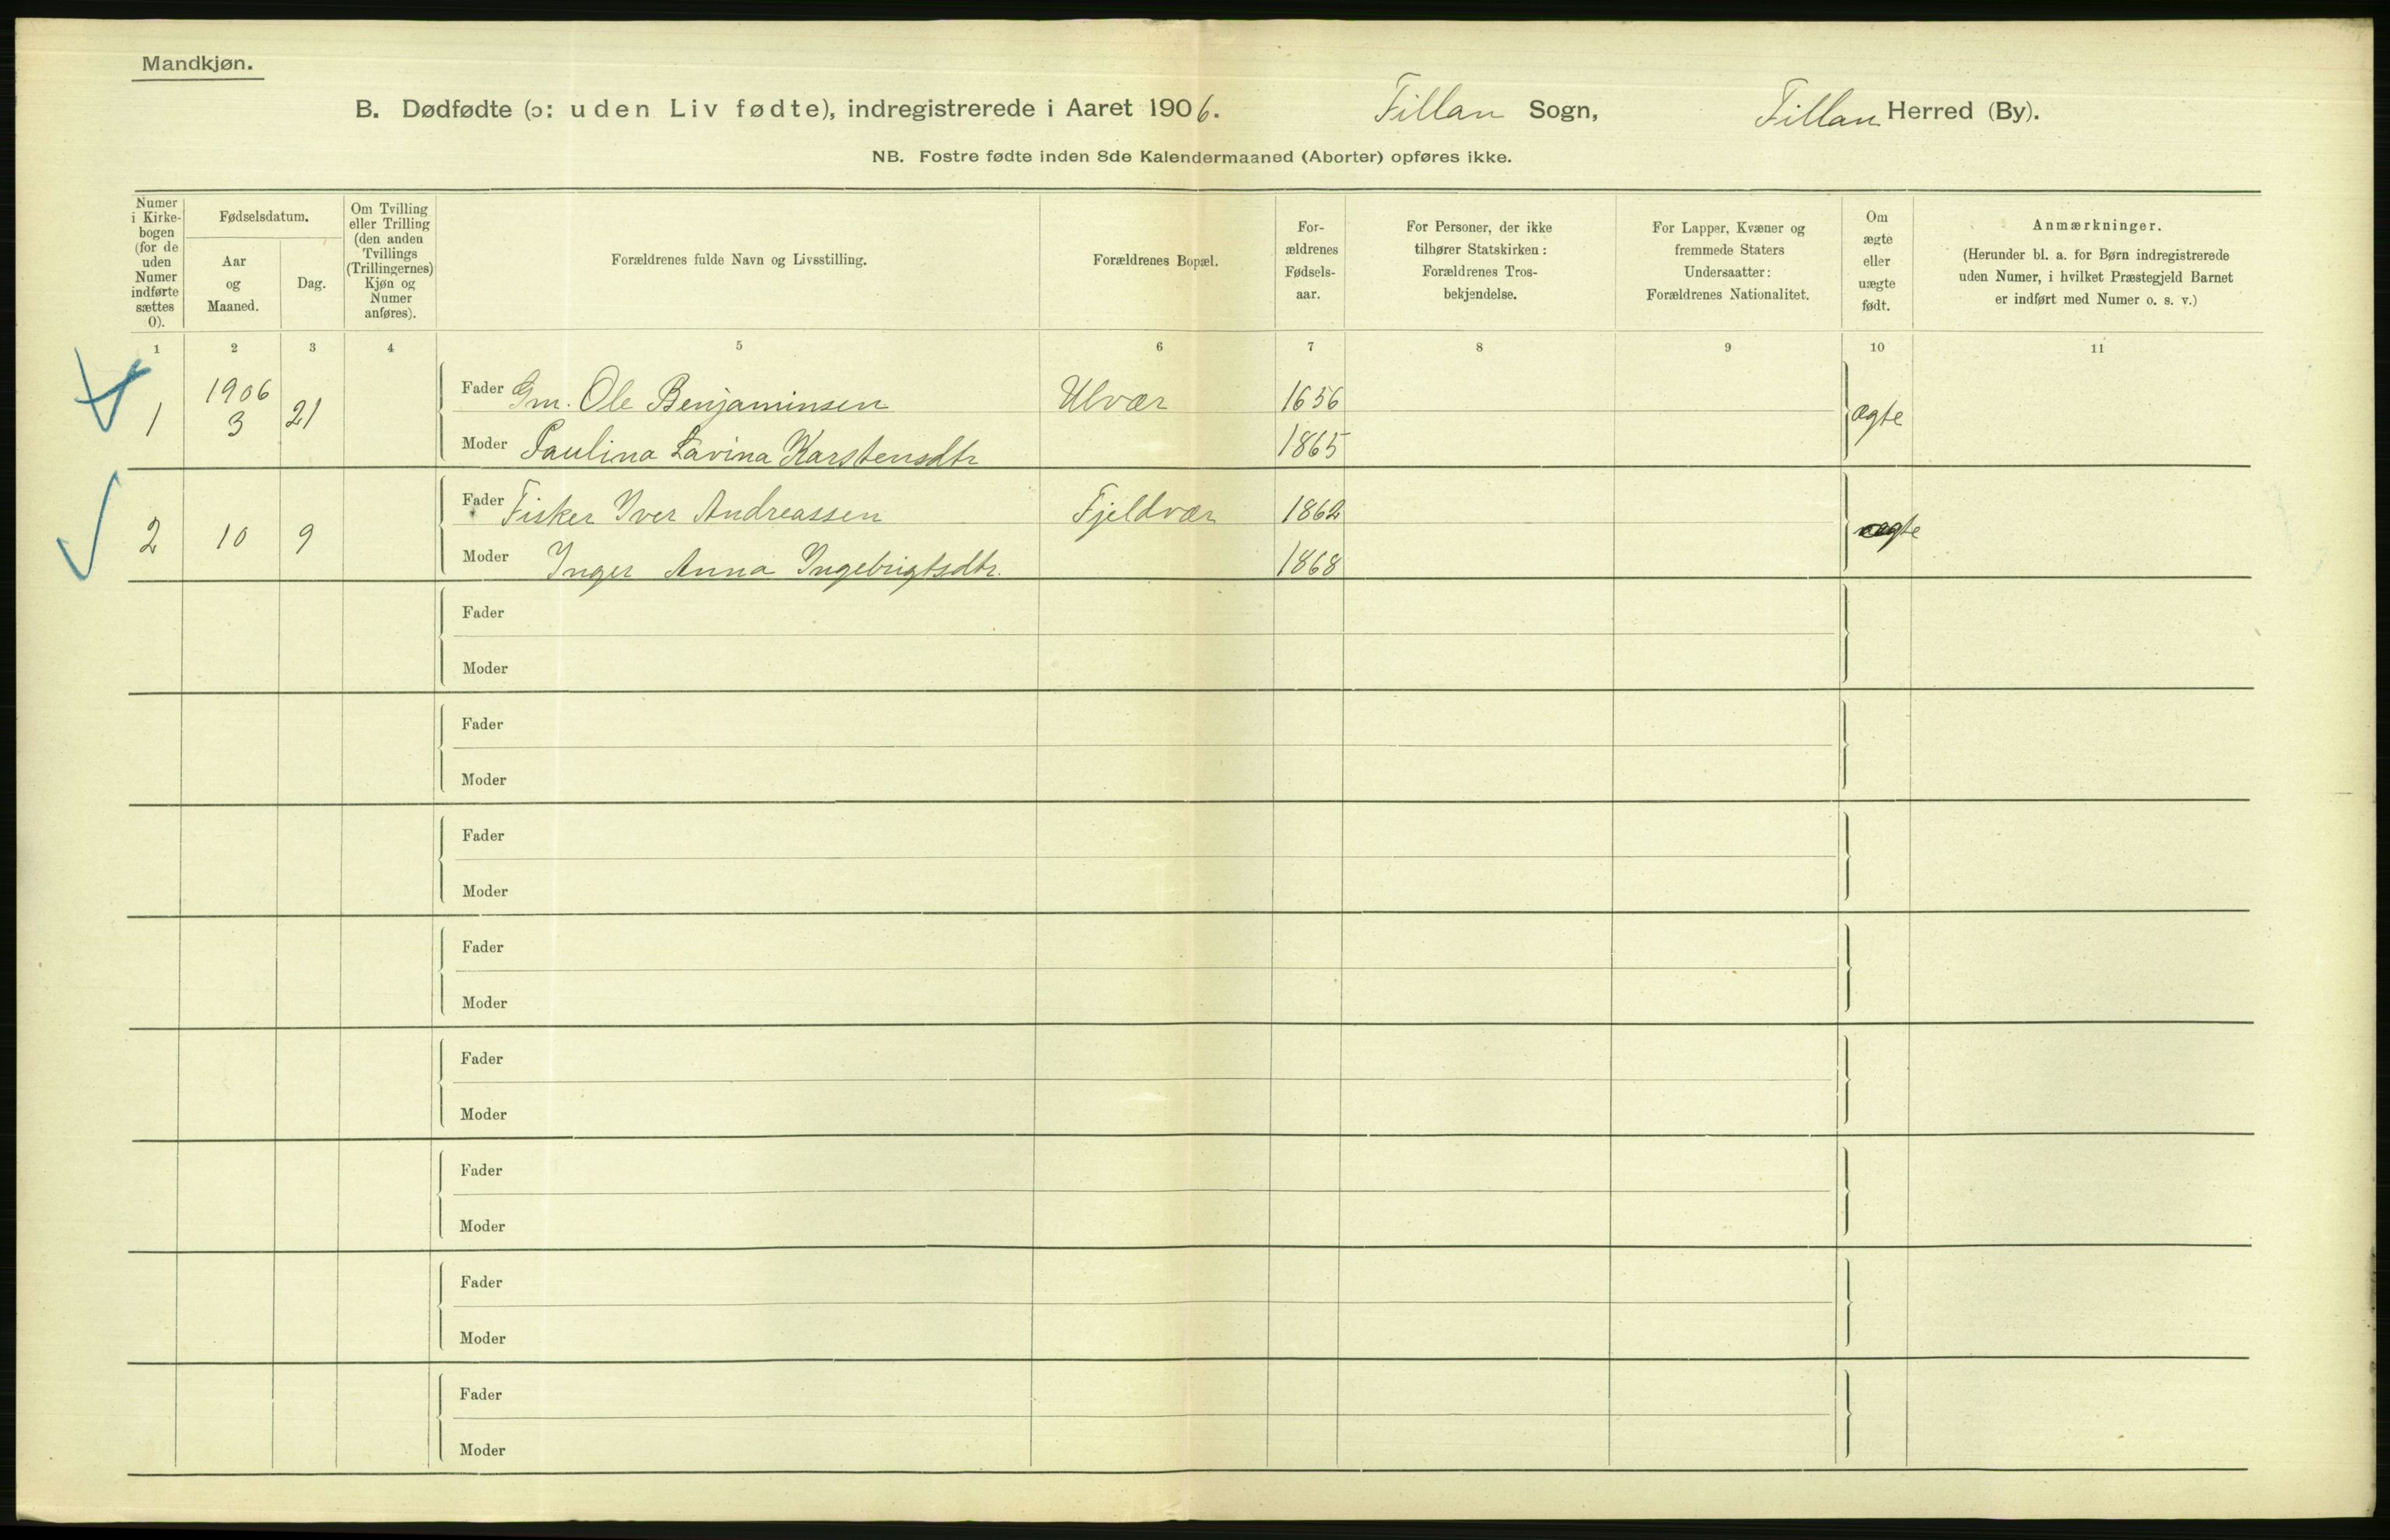 Mandkjøn.
B. Dødfødte (ɔ: uden Liv fødte), indregistrerede i Aaret 1906. Fillan Sogn, Fillan Herred (By).
NB. Fostre fødte inden 8de Kalendermaaned (Aborter) opføres ikke.
Numer i Kirkebogen (for de uden Numer indførte sættes 0).
Fødselsdatum.
Aar og Maaned.
Dag.
Om Tvilling eller Trilling (den anden Tvillings (Trillingernes) Kjøn og Numer anføres).
Forældrenes fulde Navn og Livsstilling.
Forældrenes Bopæl.
For-ældrenes Fødsels-aar.
For Personer, der ikke tilhører Statskirken: Forældrenes Tros-bekjendelse.
For Lapper, Kvæner og fremmede Staters Undersaatter: Forældrenes Nationalitet.
Om ægte eller uægte født.
Anmærkninger.
(Herunder bl. a. for Børn indregistrerede uden Numer, i hvilket Præstegjeld Barnet er indført med Numer o. s. v.)
1 2 3 4 5 6 7 8 9 10 11
1 1906 3 21 Fader Gm. Ole Benjaminsen Ulvær 1656 ægte
Moder Paulina Lavina Karstensdtr 1865
2 10 9 Fader Fisker Iver Andreassen Fjeldvær 1862 ægte
Moder Inger Anna Ingebrigtsdtr. 1868
Fader
Moder
Fader
Moder
Fader
Moder
Fader
Moder
Fader
Moder
Fader
Moder
Fader
Moder
Fader
Moder